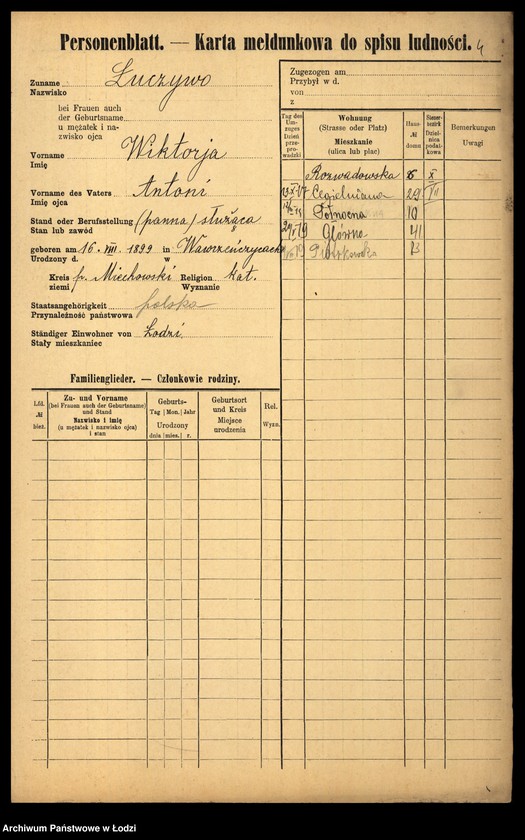 Personenblatt. — Karta meldunkowa do spisu ludności. 4
Zuname Łuczywo
Nazwisko
bei Frauen auch
der Geburtsname
u mężatek i na-
zwisko ojca
Vorname Wiktorja
Imię
Vorname des Vaters Antoni
Imię ojca
Stand oder Berufsstellung (panna) służąca
Stan lub zawód
geboren am 16. VIII. 1899 in Wawrzeńczycach
Urodzony d. w
Kreis p. Miechowski Religion kat.
ziemi Wyznanie
Staatsangehörigkeit polska
Przynależność państwowa
Ständiger Einwohner von Łodzi.
Stały mieszkaniec
Familienglieder. — Członkowie rodziny.
Lfd. № bież.
Zu- und Vorname
(bei Frauen auch der Geburtsname)
und Stand
Nazwisko i imię
(u mężatek i nazwisko ojca)
i stan
Geburts-
Tag Mon. Jahr
Urodzony
dnia mies. r.
Geburtsort
und Kreis
Miejsce
urodzenia
Rel.
Wyzn.
Zugezogen am
Przybył w d.
von
z
Tag des
Um-
zuges
Dzień
prze-
prowadzki
Wohnung
(Strasse oder Platz)
Mieszkanie
(ulica lub plac)
Haus-
№
domu
Steuer-
bezirk
Dziel-
nica
podat-
kowa
Bemerkungen
Uwagi
Rozwadowska 8 X
Cegielniana 29 VII
Północna 10
Główna 41
Piotrkowska
Archiwum Państwowe w Łodzi